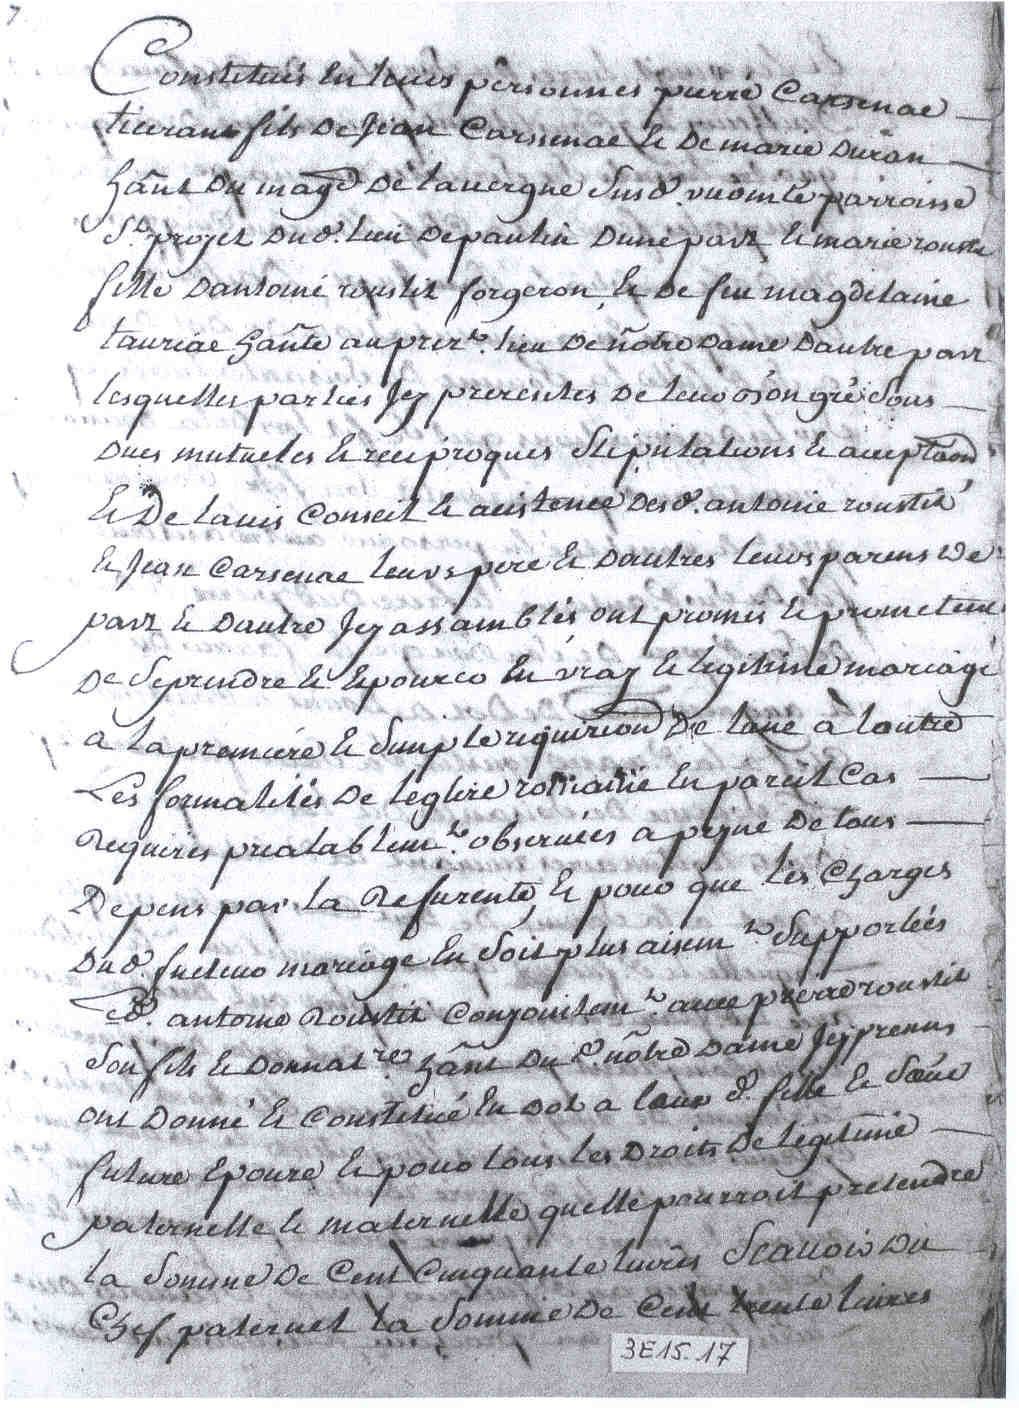 7
Constitués en leurs personnes pierre Carsenac
tisserant fils de Jean Carsenac et de marie duran
hãnt du mage de lauergne susd. vicomté parroisse
St. projet dud. lieu de paulin dune part et marie roustit
fille dantoine roustit forgeron et de feu magdelaine
tauriac hãnte au prest. lieu de nõtre dame dautre part
lesquelles parties Jcy presentes de leur bon gré sous
dues mutueles et reciproques stipulations et acceptaõn
et de lauis conseil et acistence desd. antoine roustit
et Jean Carsenac leurs pere et dautres leurs parens de
part et dautre Jcy assamblés ont promis et prometent
de se prendre et Epouser en vray et legitime mariage
a la premiere et simple requisition de lune a lautre
Les formalités de leglise romaine en pareil cas
Requises prealablemt. observées a peyne de tous
Depens par la Refusente et pour que les charges
dud. futeur mariage en soit plus aisemt. supportées
Led. antoine Roustit conjointemt. auec pierre roustit
son fils et donnatre. hãnt dud. nõtre dame Jcy presens
ont donné et constitué en dot a leur d. fille et sœur
future Epouse et pour tous les droits de legitime
paternelle et maternelle quelle pourroit pretendre
la somme de cent cinquante liures scauoir du
Chef paternel la somme de cent trente liures
3E15.17